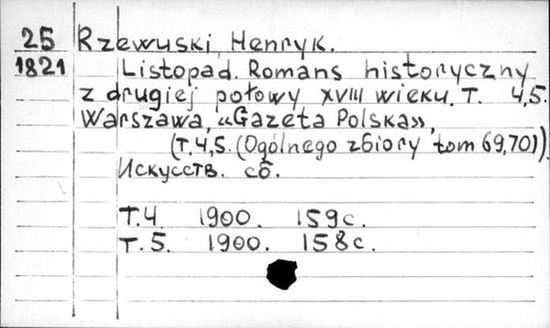 25 Rzewuski, Henryk.
1821 Listopad. Romans historyczny
z drugiej połowy XVIII wieku. T. 4,5.
Warszawa, «Gazeta Polska»,
(T.4,5. (Ogólnego zbiory tom 69,70)).
Искусств. сб.
T.4 1900. 159c.
T.5. 1900. 158c.